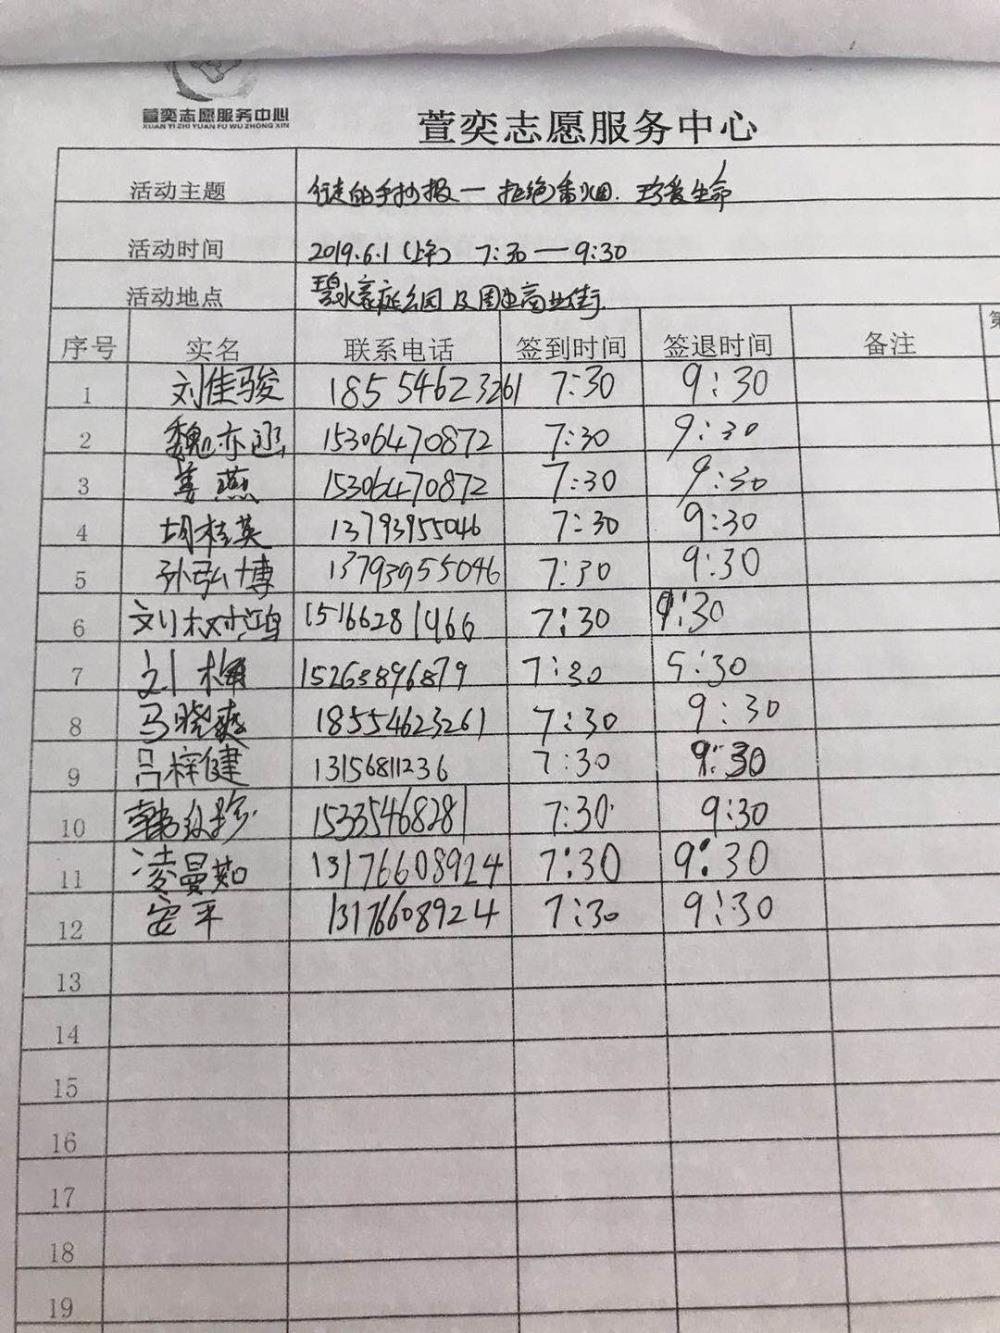 萱奕志愿服务中心
XUAN YI ZHI YUAN FU WU ZHONG XIN
萱奕志愿服务中心
活动主题 行走的手抄报一 拒绝香烟.珍爱生命
活动时间 2019.6.1(上午) 7:30—9:30
活动地点 碧水家庭公园及周边商业街
序号 实名 联系电话 签到时间 签退时间 备注 第
1 刘佳骏 18554623261 7:30 9:30
2 魏亦涵 15306470872 7:30 9:30
3 姜燕 15306470872 7:30 9:30
4 胡桂英 13793955046 7:30 9:30
5 孙弘博 13793955046 7:30 9:30
6 刘树鸿 15166281466 7:30 9:30
7 刘梅 15263896879 7:30 9:30
8 马晓爽 18554623261 7:30 9:30
9 吕梓健 13156811236 7:30 9:30
10 韩 15335468281 7:30 9:30
11 凌曼茹 13176608924 7:30 9:30
12 安平 13176608924 7:30 9:30
13
14
15
16
17
18
19